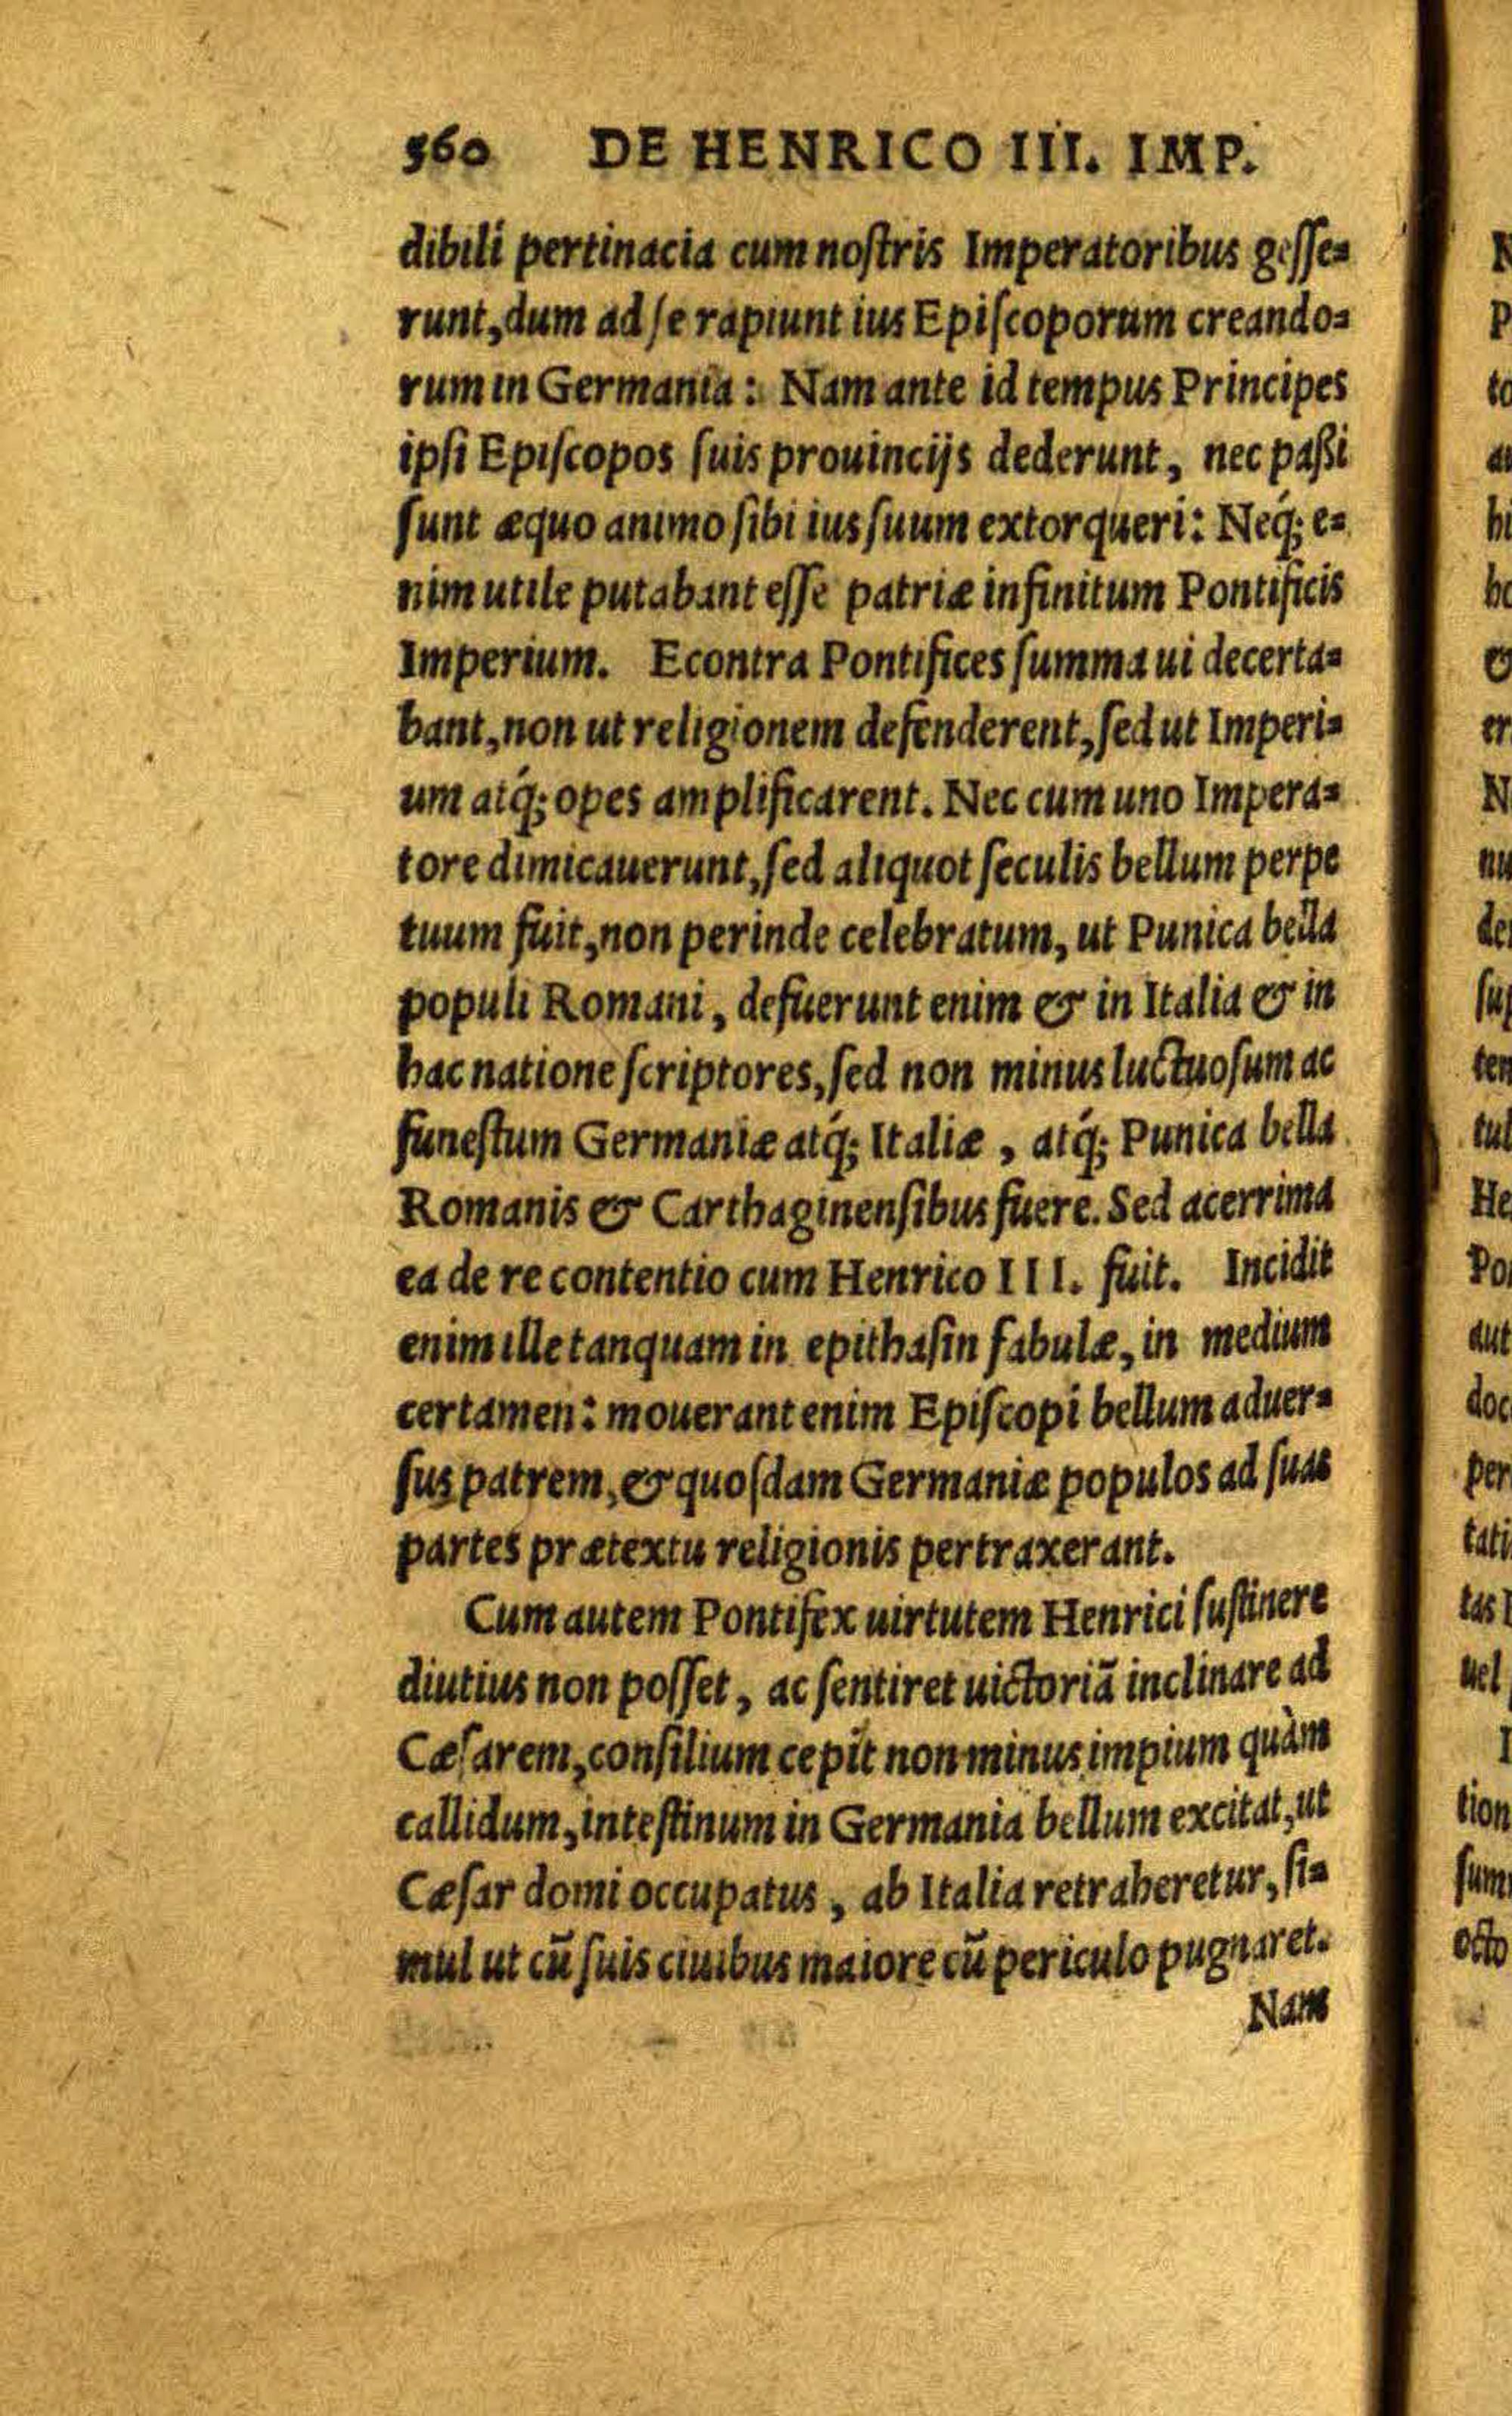 560 DE HENRICO III. IMP.
dibili pertinacia cum noſtris Imperatoribus geſſe-
runt, dum ad ſe rapiunt ius Epiſcoporum creando-
rum in Germania: Nam ante id tempus Principes
ipſi Epiſcopos ſuis prouincijs dederunt, nec paßi
ſunt æquo animo ſibi ius ſuum extorqueri: Neq́; e-
nim utile putabant eſſe patriæ infinitum Pontificis
Imperium. Econtra Pontifices ſumma ui decerta-
bant, non ut religionem defenderent, ſed ut Imperi-
um atq́; opes amplificarent. Nec cum uno Impera-
tore dimicauerunt, ſed aliquot ſeculis bellum perpe
tuum fuit, non perinde celebratum, ut Punica bella
populi Romani, defuerunt enim & in Italia & in
hac natione ſcriptores, ſed non minus luctuoſum ac
funeſtum Germaniæ atq́; Italiæ, atq́; Punica bella
Romanis & Carthaginenſibus fuere. Sed acerrima
ea de re contentio cum Henrico III. fuit. Incidit
enim ille tanquam in epithaſin fabulæ, in medium
certamen: mouerant enim Epiſcopi bellum aduer-
ſus patrem, & quoſdam Germaniæ populos ad ſuas
partes prætextu religionis pertraxerant.
Cum autem Pontifex uirtutem Henrici ſuſtinere
diutius non poſſet, ac ſentiret uictoriā inclinare ad
Cæſarem, conſilium cepit non minus impium quàm
callidum, inteſtinum in Germania bellum excitat, ut
Cæſar domi occupatus, ab Italia retraheretur, ſi-
mul ut cū ſuis ciuibus maiore cū periculo pugnaret.
Nam